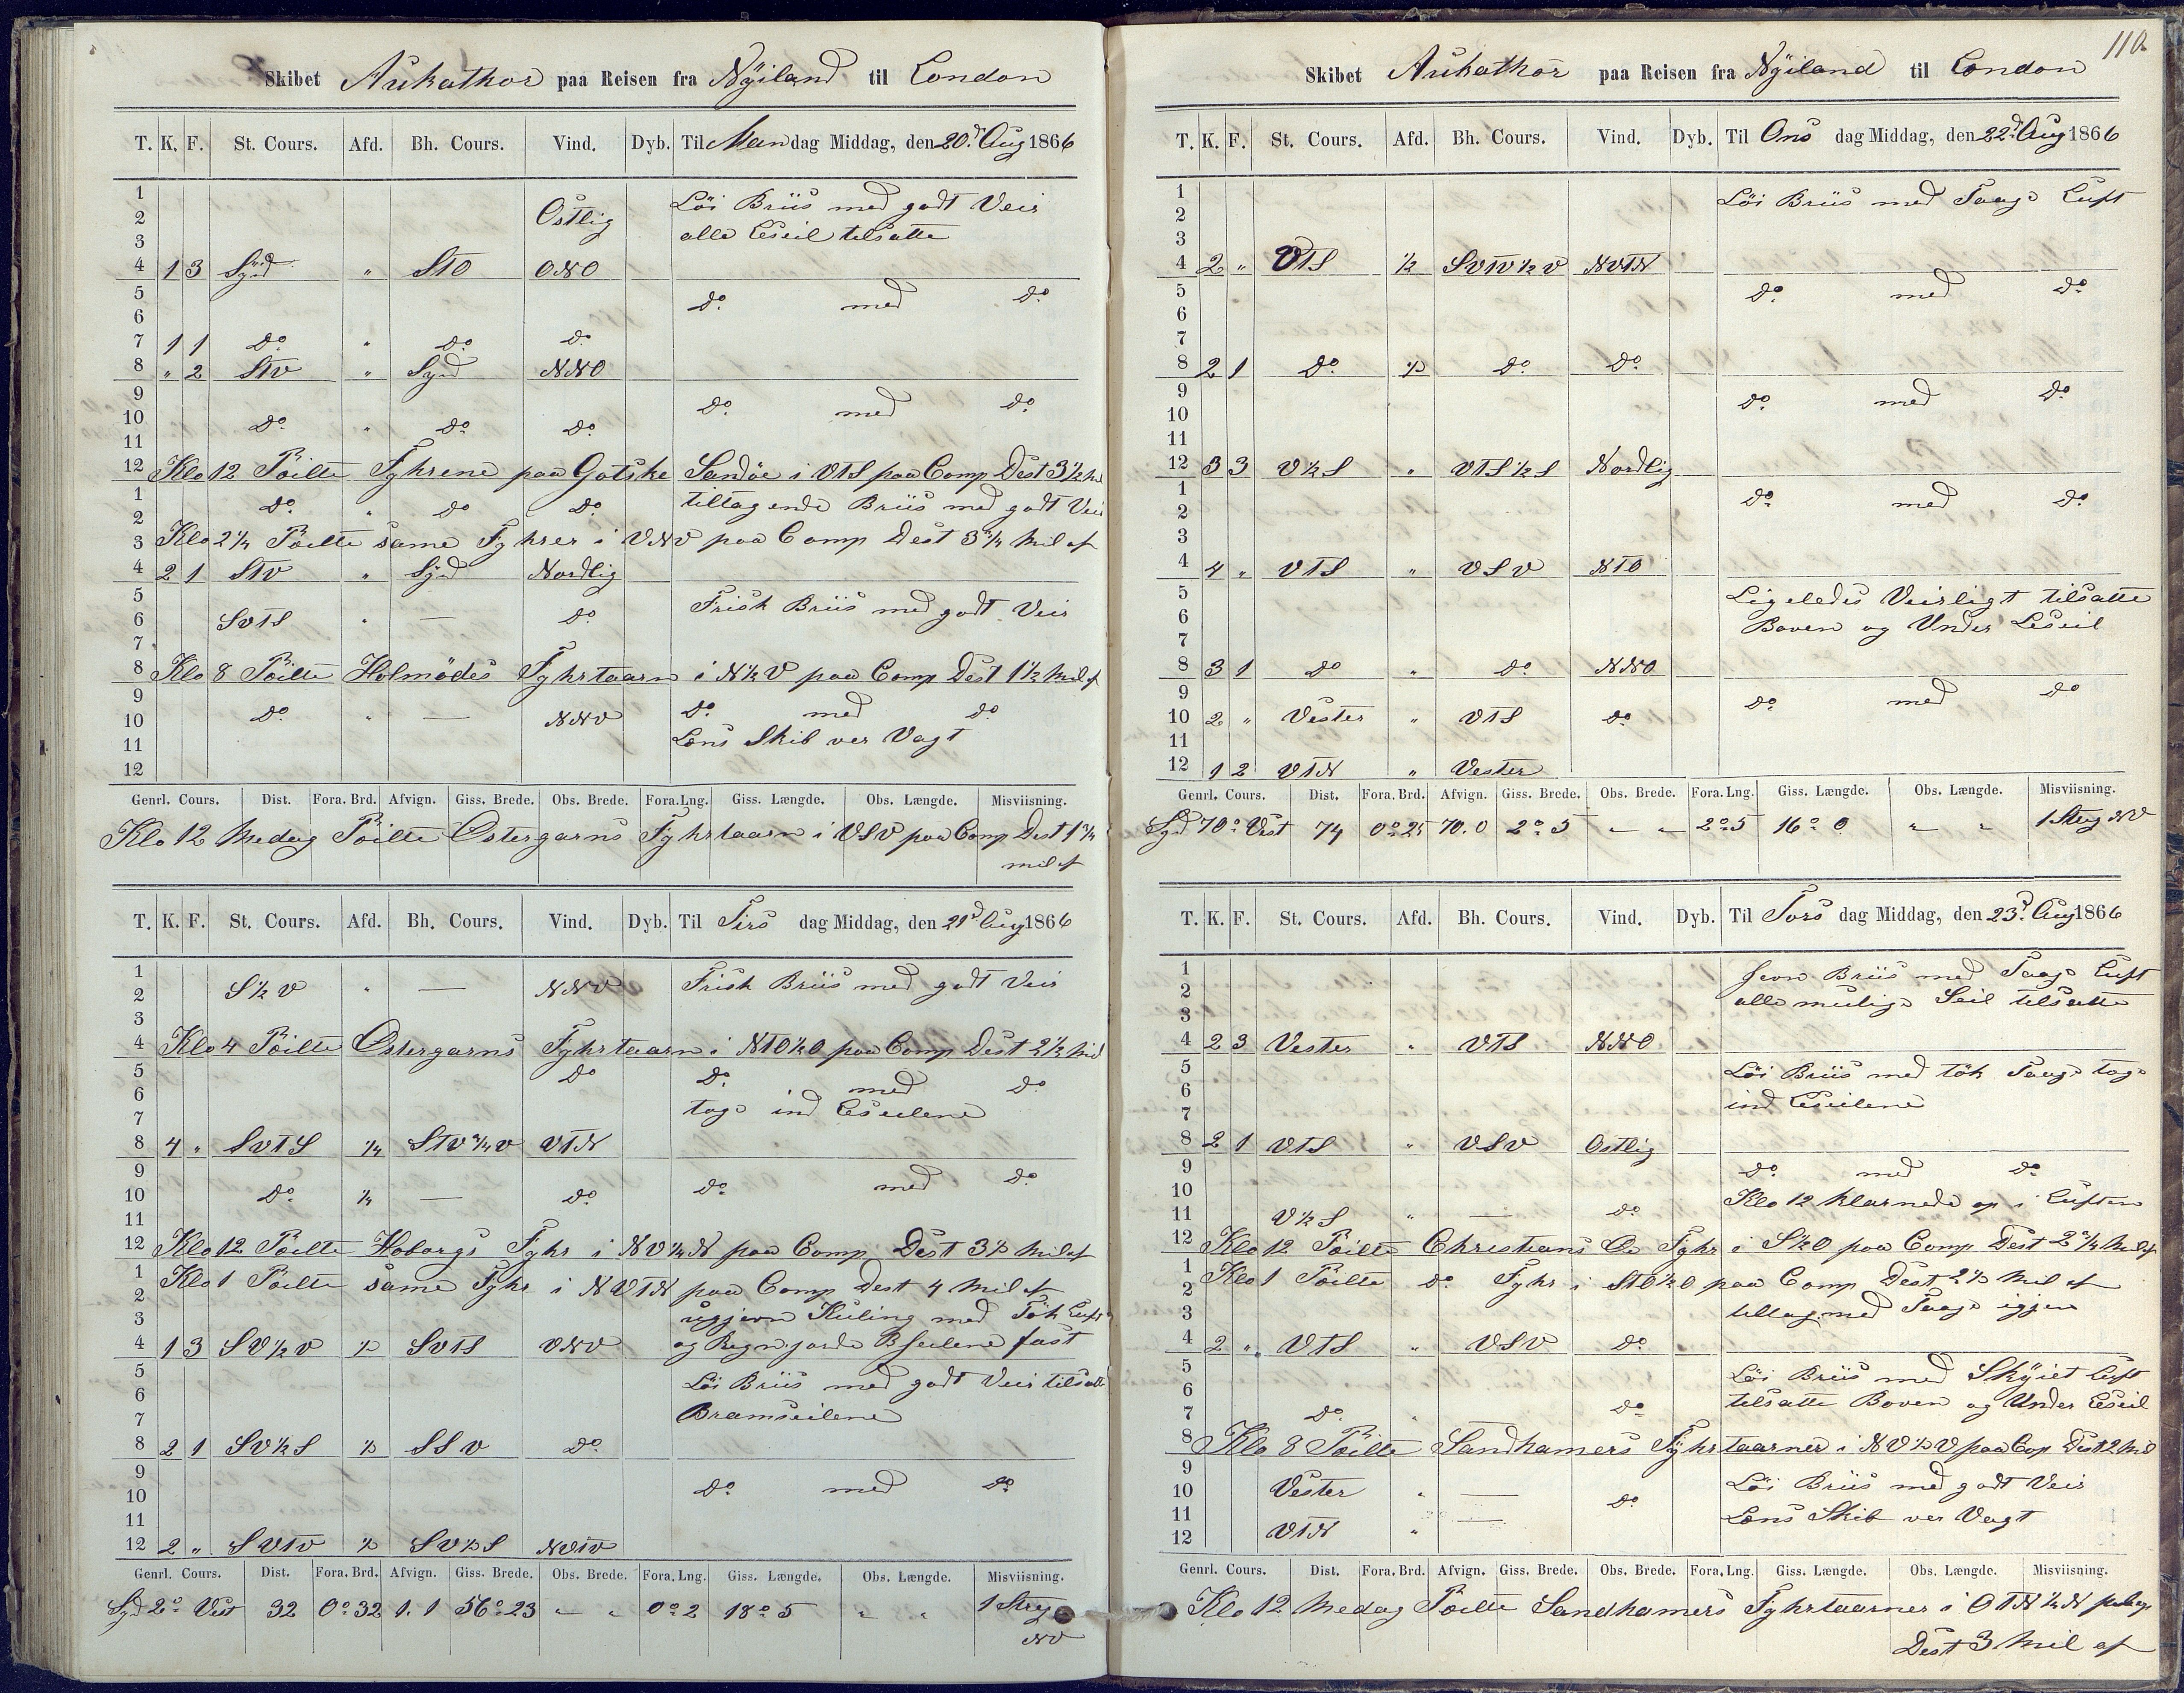 Skibet Aukathor paa Reisen fra Nyiland til London
T. K. F. St. Cours. Afd. Bh. Cours. Vind. Dyb. Til Mandag Middag, den 20.d Aug 1866
1
2 Östlig Löi Briis med godt Veir
3 alle Leseil tilsatte
4 1 3 Syd " STO ONO
5 do. med do.
6
7 1 1 do " do. do.
8 " 2 STV " Syd NNO
9 do. med do.
10 do. " do. do.
11
12 Klo 12 Pöilte Fyhrene paa Gotske Sandöe i VTS paa Comp Dest 3½ Mil
1 do. " do do tiltagende Briis med godt Veir
2
3 Klo 2¼ Pöilte same Fyhrer i VNV paa Comp Dest 3¾ Mil af
4 2 1 STV " Syd Nordlig
5 Frisk Briis med godt Veir
6 SVTS " — do.
7
8 Klo 8 Pöilte Holmödes Fyhrtaarn i N½V paa Comp Dest 1½ Mil af
9 do. med do.
10 do. " — NNV Lens Skib ver Vagt
11
12
Genrl. Cours. Dist. Fora. Brd. Afvign. Giss. Brede. Obs. Brede. Fora.Lng. Giss. Længde. Obs. Længde. Misviisning.
Klo 12 Medag Pöilte Östergarns Fyhrtaarn i VSV paa Comp Dest 1¾
mil af
T. K. F. St. Cours. Afd. Bh. Cours. Vind. Dyb. Til Tirs dag Middag, den 21d Aug 1866
1 Frisk Briis med godt Veir
2 S½V " — NNV
3
4 Klo 4 Pöilte Östergarns Fyhrtaarn i NTO½O paa Comp Dest 2½ Mil
5 do do. med do
6 tage ind Leseilene
7
8 4 " SVTS ¼ STV¾V VTN
9 do. med do.
10 do. ¼ — do.
11
12 Klo 12 Pöilte Hoborgs Fyhr i NV¼N paa Comp Dest 3½ Mil af
1 Klo 1 Pöilte same Fyhr i NVTN paa Comp Dest 4 Mil af
2
3 ugjevn Kuling med Tök Luft
4 1 3 SV½V ½ SVTS VNV og Regn gjorde B seilene fast
5 Löi Briis med godt Veir tilsatte
6 Bramseilene
7
8 2 1 SV½S ½ SSV do.
9 do. med do
10
11
12 2 " SVTV ½ SV½S NVTV
Genrl. Cours. Dist. Fora. Brd. Afvign. Giss. Brede. Obs. Brede. Fora.Lng. Giss. Længde. Obs. Længde. Misviisning.
Syd 2° Vest 32 0°32 1.1 56°23 " " 0°2 18°5 " " 1 Streg
NV
110
Skibet Aukathor paa Reisen fra Nyiland til London
T. K. F. St. Cours. Afd. Bh. Cours. Vind. Dyb. Til Ons dag Middag, den 22d Aug 1866
1 Löi Briis med Taage Luft
2
3
4 2 " VTS ½ SVTV½V NVTN
5 do. med do.
6
7
8 2 1 do. ½ do. do.
9 do. med do.
10
11
12 3 3 V½S " VTS½S Nordlig
1 do. med do.
2
3
4 4 " VTS " VSV NTO
5 Ligeledes Veirligt tilsatte
6 Boven og Under Leseil
7
8 3 1 do " do. NNO
9 do. med do
10 2 " Vester " VTS do.
11
12 1 2 VTN " Vester
Genrl. Cours. Dist. Fora. Brd. Afvign. Giss. Brede. Obs. Brede. Fora.Lng. Giss. Længde. Obs. Længde. Misviisning.
Syd 70° Vest 74 0°25 70.0 2°5 " " 2°5 16°0 " " 1 Streg NV
T. K. F. St. Cours. Afd. Bh. Cours. Vind. Dyb. Til Tors dag Middag, den 23d. Aug 1866
1 Jevn Briis med Taage Luft
2 alle mulige Seil tilsatte
3
4 2 3 Vester " VTS NNO
5 Löi Briis med tök Taage tage
6 ind Leseilene
7
8 2 1 VTS " VSV Ostlig
9 do. med do.
10 Klo 12 klarnede op i Luften
11 V½S " — do
12 Klo 12 Pöilte Christians Ö Fyhr i S½O paa Comp Dest 2¾ Mil af
1 Klo 1 Pöilte do. Fyhr i STO½O paa Comp Dest 2½ Mil af
2
3 tiltag med Taage igjen
4 2 " VTS " VSV do.
5 Löi Briis med Skyiet Luft
6 tilsatte Boven og Under Leseil
7 do. " do
8 Klo 8 Pöilte Sandhamers Fyhrtaarner i NV½V paa Cop Dest 2 Mil
9 Löi Briis med godt Veir
10 Vester " — do
11 Lens Skib ver Vagt
12 VTN " —
Genrl. Cours. Dist. Fora. Brd. Afvign. Giss. Brede. Obs. Brede. Fora.Lng. Giss. Længde. Obs. Længde. Misviisning.
Klo 12 Medag Pöilte Sandhamers Fyhrtaarner i OTN½N
Dest 3 Mil af